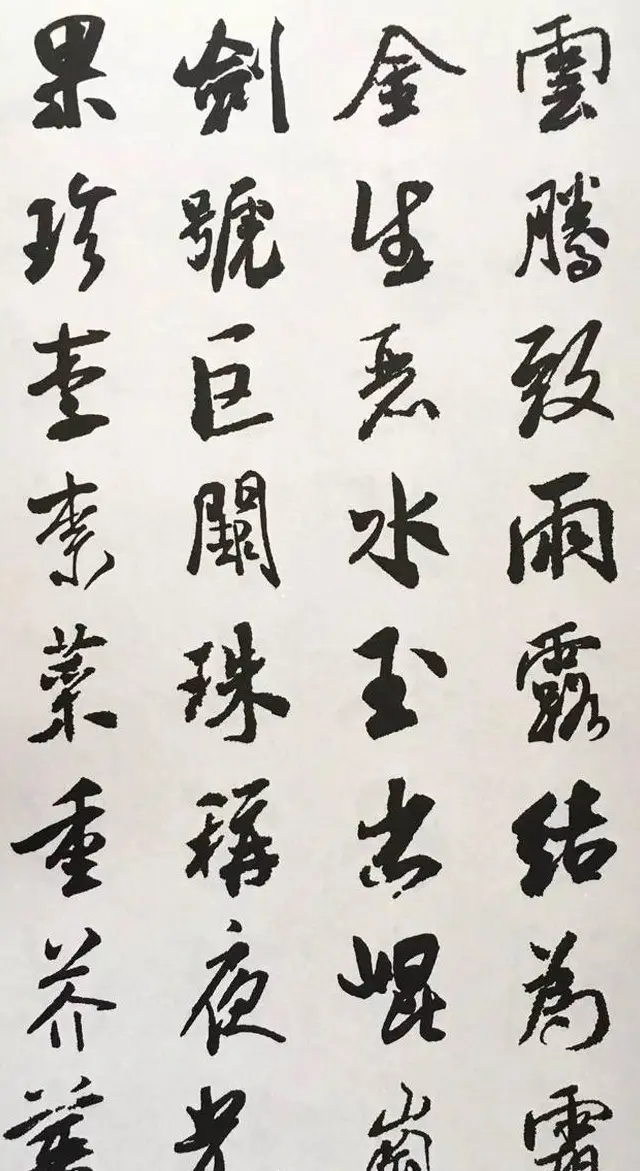 雲騰致雨露結為霜
金生麗水玉出崐崗
劍號巨闕珠稱夜光
果珍李柰菜重芥薑